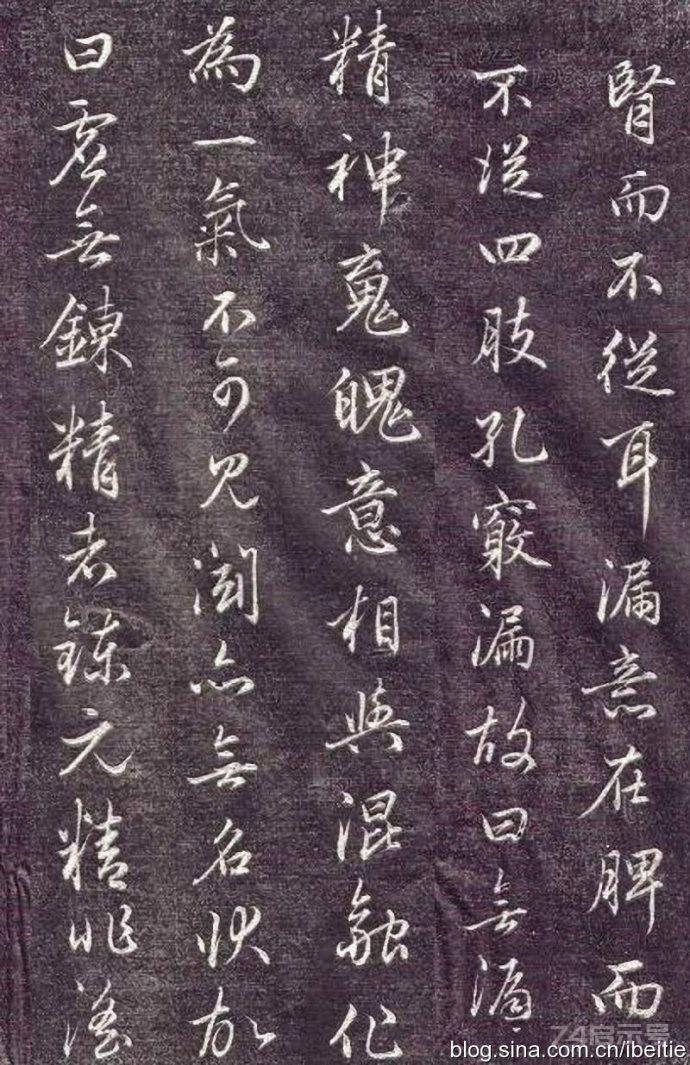 腎而不從耳漏意在脾而
不從四肢孔竅漏故曰無漏
精神䰟魄意相與混融化
為一氣不可見聞亦無名狀故
曰虛無鍊精者鍊元精非淫
blog.sina.com.cn/ibeitie